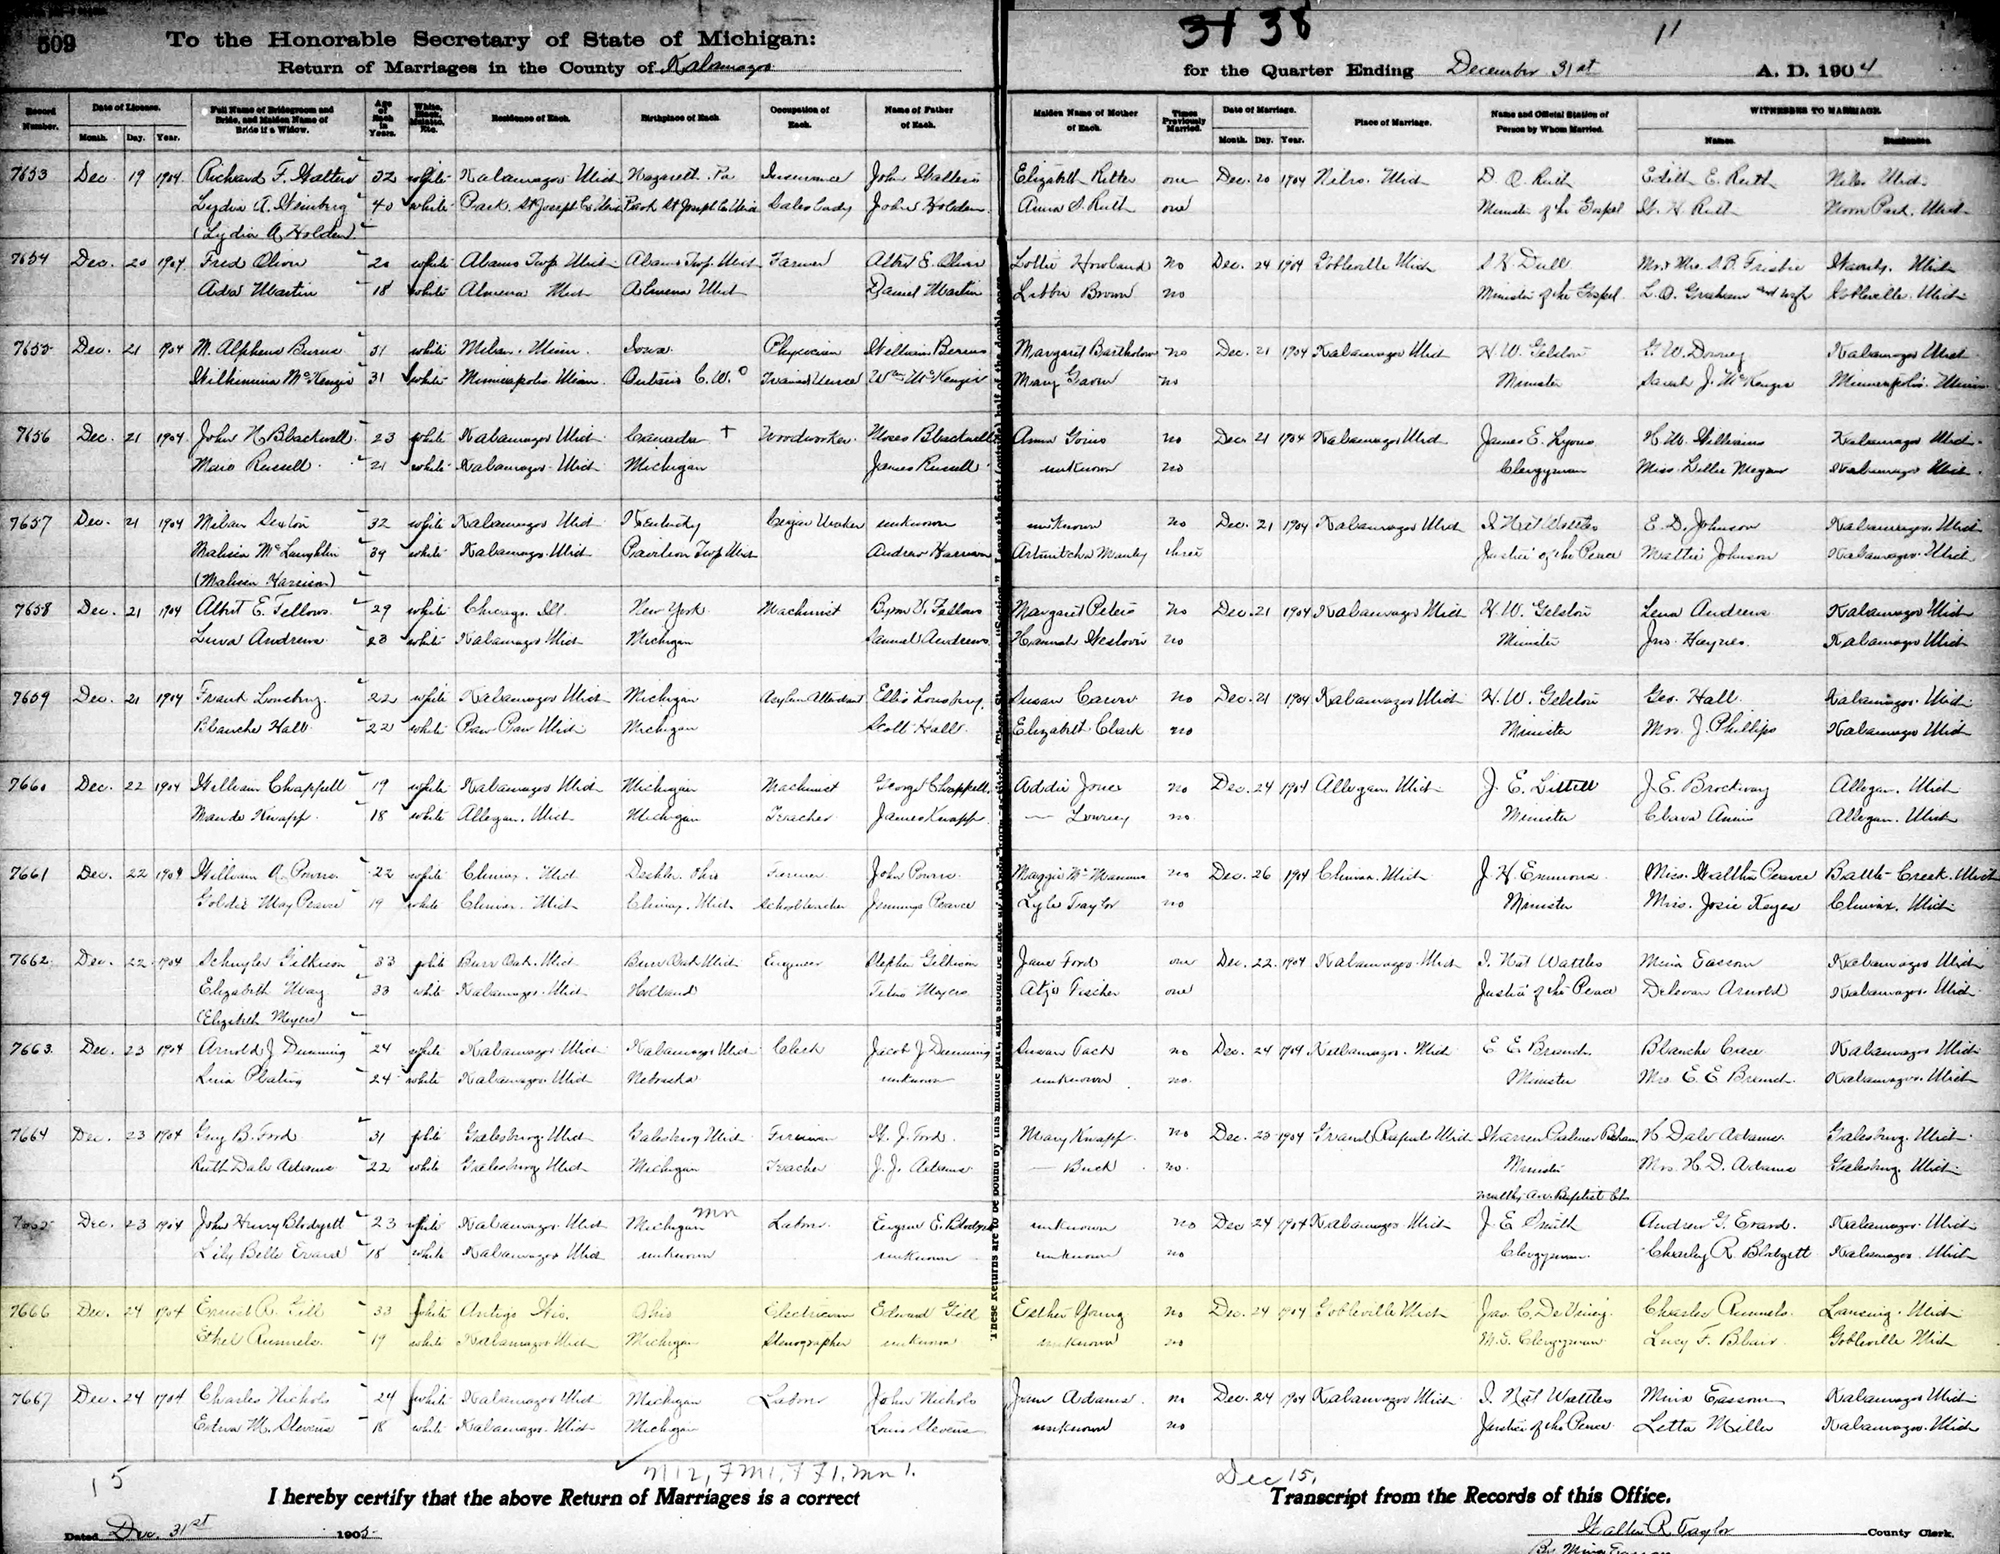 509
To the Honorable Secretary of State of Michigan:
Return of Marriages in the County of Kalamazoo
3138 11
for the Quarter Ending December 31st A. D. 1904
Record Number. Date of License. Month. Day. Year. Full Name of Bridegroom and Bride, and Maiden Name of Bride if a Widow. Age of Each in Years. White, Black, Mulatto, Etc. Residence of Each. Birthplace of Each. Occupation of Each. Name of Father of Each. Maiden Name of Mother of Each. Times Previously Married. Date of Marriage. Month. Day. Year. Place of Marriage. Name and Official Station of Person by Whom Married. WITNESSES TO MARRIAGE. Names. Residence.
7653 Dec. 19 1904 Richard F. Walters 32 white Kalamazoo Mich Nazareth. Pa Insurance John Walters Elizabeth Ritter one Dec. 20 1904 Niles. Mich D. O. Ruth Edith E. Ruth Niles Mich
Lydia A. 40 white Park St Joseph Co Mich Park St Joseph Co Mich Saleslady John Holden Anna S. Ruth one Minister of the Gospel W. H. Ruth Park. Mich
(Lydia A. Holden)
7654 Dec. 20 1904 Fred Oliver 20 white Twp Mich Twp. Mich Farmer Albert E. Oliver Lottie Howland no Dec. 24 1904 Gobleville Mich S. H. Dull Mr & Mrs S. B. Frisbie Waverly. Mich
Ada Martin 18 white Almena Mich Almena Mich Daniel Martin Libbie Brown no Minister of the Gospel. L. O. Graham and wife Gobleville. Mich
7655 Dec. 21 1904 M. Alpheus Burns 31 white Milan. Minn. Iowa Physician William Burns Margaret Bartholow no Dec. 21 1904 Kalamazoo Mich H. W. Gelston G. W. Downey Kalamazoo Mich
Wilhimina McKenzie 31 white Minneapolis. Minn. Ontario C. W. Trained Nurse Wm McKenzie Mary Gavin no Minister Sarah J. McKenzie Minneapolis. Minn
7656 Dec. 21 1904 John N. Blackwell 23 white Kalamazoo Mich Canada Woodworker. Moses Blackwell Anna Goins no Dec 21 1904 Kalamazoo Mich James E. Lyons H. W. Williams Kalamazoo Mich
Maie Russell 21 white Kalamazoo. Mich Michigan James Russell unknown no Clergyman Miss. Lillie Megan Kalamazoo Mich.
7657 Dec. 21 1904 Milan Sexton 32 white Kalamazoo Mich Kentucky Cigar Maker unknown unknown no Dec. 21 1904 Kalamazoo Mich I. Nat Wattles E. D. Johnson Kalamazoo. Mich
Malissa McLaughlin 39 white Kalamazoo. Mich Pavilion Twp Mich Andrew Harrison Manley three Justice of the Peace Mattie Johnson Kalamazoo. Mich
(Malissa Harrison)
7658 Dec. 21 1904 Albert E. Fellows 29 white Chicago. Ill. New York Machinist Byron V. Fellows Margaret Peters no Dec. 21 1904 Kalamazoo Mich H. W. Gelston Lena Andrews Kalamazoo Mich
Luva Andrews 23 white Kalamazoo Mich Michigan Samuel Andrews Hannah no Minister Jno. Haynes Kalamazoo Mich
7659 Dec. 21 1904 Frank Lonsbury 22 white Kalamazoo Mich Michigan Asylum Attendant Ellis Lonsbury Susan no Dec 21 1904 Kalamazoo Mich H. W. Gelston Geo. Hall Kalamazoo. Mich
Blanche Hall 22 white Paw Paw Mich Michigan Scott Hall Elizabeth Clark no Minister Mrs. J. Phillips Kalamazoo Mich
7660 Dec. 22 1904 William Chappell 19 white Kalamazoo Mich Michigan Machinist George Chappell Addie Jones no Dec. 24 1904 Allegan. Mich J. E. Littell J. E. Brockway Allegan. Mich
Maude Knapp 18 white Allegan. Mich Michigan Teacher James Knapp — Lowrey no Minister Clara Allegan. Mich
7661 Dec. 22 1904 William A. Powers 22 white Climax. Mich Deshler. Ohio Farmer John Powers Maggie McManus no Dec. 26 1904 Climax. Mich J. H. Emmons Miss. Pearce Battle Creek. Mich
Goldie May Pearce 19 white Climax. Mich Climax. Mich School teacher Jennings Pearce Lyle Traylor no Minister Mrs. Josie Keyes Climax. Mich
7662 Dec. 22 1904 Schuyler Gilkison 33 white Burr Oak. Mich Burr Oak Mich Engineer Stephen Gilkison Jane Ford one Dec. 22. 1904 Kalamazoo. Mich I. Nat Wattles Mina Eassom Kalamazoo Mich
Elizabeth 33 white Kalamazoo. Mich Holland Meyers Fischer one Justice of the Peace Delevan Arnold Kalamazoo. Mich
(Elizabeth Meyers)
7663 Dec. 23 1904 Arnold J Dunning 24 white Kalamazoo Mich Kalamazoo Mich Clerk Jacob J Dunning Susan no Dec. 24 1904 Kalamazoo. Mich E. E. Branch Blanche Kalamazoo Mich
24 white Kalamazoo. Mich Nebraska unknown unknown no. Minister Mrs E. E Branch. Kalamazoo. Mich
7664 Dec. 23 1904 Guy B. Ford 31 white Galesburg. Mich Galesburg Mich Fireman W. J. Ford. Mary Knapp no Dec 23 1904 Grand Rapids Mich Warren Palmer H Dale Adams Galesburg. Mich
Ruth Dale Adams 22 white Galesburg Mich Michigan Teacher J. J. Adams — Buck no. Minister Mrs. H. D. Adams Galesburg. Mich
Wealthy Av. Baptist Ch.
7665 Dec. 23 1904 John Henry Blodgett 23 white Kalamazoo Mich Michigan mn Labor Eugene E. Blodgett unknown no Dec 24 1904 Kalamazoo. Mich J. E. Smith Andrew G. Evard. Kalamazoo. Mich
Lily Belle Evard 18 white Kalamazoo Mich unknown unknown unknown no Clergyman. Charley R. Blodgett Kalamazoo. Mich
7666 Dec. 24 1904 Ernest R. Gill 33 white Antigo Wis. Ohio Electrician Edward Gill Esther Young no Dec. 24 1904 Gobleville Mich Jas. C. DeViney Charles Runnels. Lansing. Mich
Ethel Runnels. 19 white Kalamazoo Mich Michigan Stenographer unknown unknown no M. E. Clergyman Lucy F. Blair Gobleville Mich
7667 Dec. 24 1904 Charles Nichols 24 white Kalamazoo Mich Michigan Labor John Nichols Jean Adams. no Dec. 24 1904 Kalamazoo. Mich I. Nat Wattles Mina Eassom Kalamazoo Mich
M. Stevens 18 white Kalamazoo. Mich Michigan Louis Stevens unknown no Justice of the Peace Letta Miller Kalamazoo. Mich
15
Dec 15,
I hereby certify that the above Return of Marriages is a correct Transcript from the Records of this Office.
Dated Dec. 31st 1905 Walter R. Taylor County Clerk.
By Mina Eassom